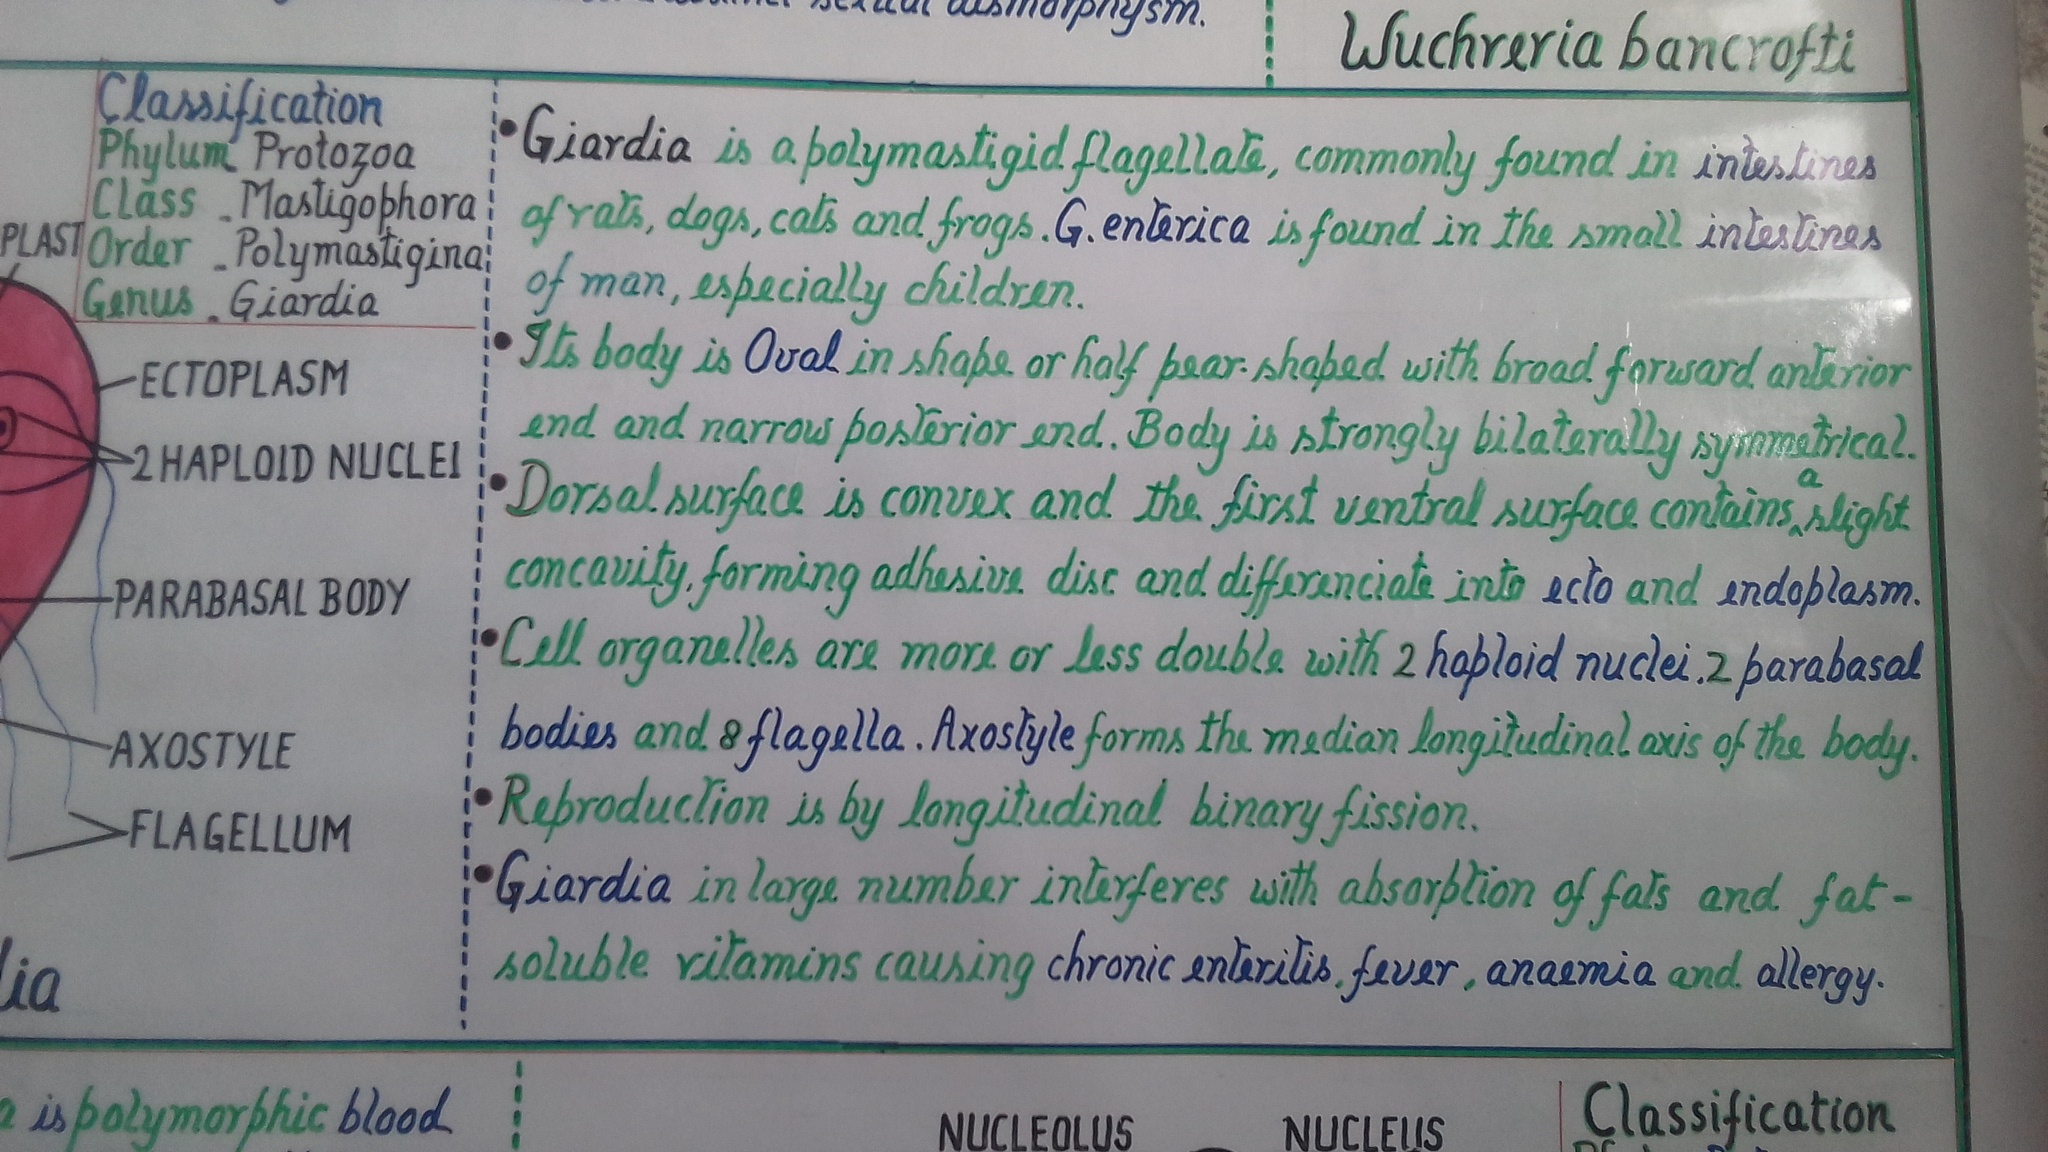 sexual dismorphysm.
Wuchreria bancrofti
Classification
Phylum Protozoa
Class - Mastigophora
Order - Polymastigina
Genus - Giardia
PLAST
ECTOPLASM
2 HAPLOID NUCLEI
PARABASAL BODY
AXOSTYLE
FLAGELLUM
dia
• Giardia is a polymastigid flagellate, commonly found in intestines
of rats, dogs, cats and frogs. G. enterica is found in the small intestines
of man, especially children.
• Its body is Oval in shape or half pear-shaped with broad forward anterior
end and narrow posterior end. Body is strongly bilaterally symmetrical.
• Dorsal surface is convex and the first ventral surface contains a slight
concavity, forming adhesive disc and differenciate into ecto and endoplasm.
• Cell organelles are more or less double with 2 haploid nuclei, 2 parabasal
bodies and 8 flagella. Axostyle forms the median longitudinal axis of the body.
• Reproduction is by longitudinal binary fission.
• Giardia in large number interferes with absorption of fats and fat-
soluble vitamins causing chronic enteritis, fever, anaemia and allergy.
a is polymorphic blood
NUCLEOLUS
NUCLEUS
Classification